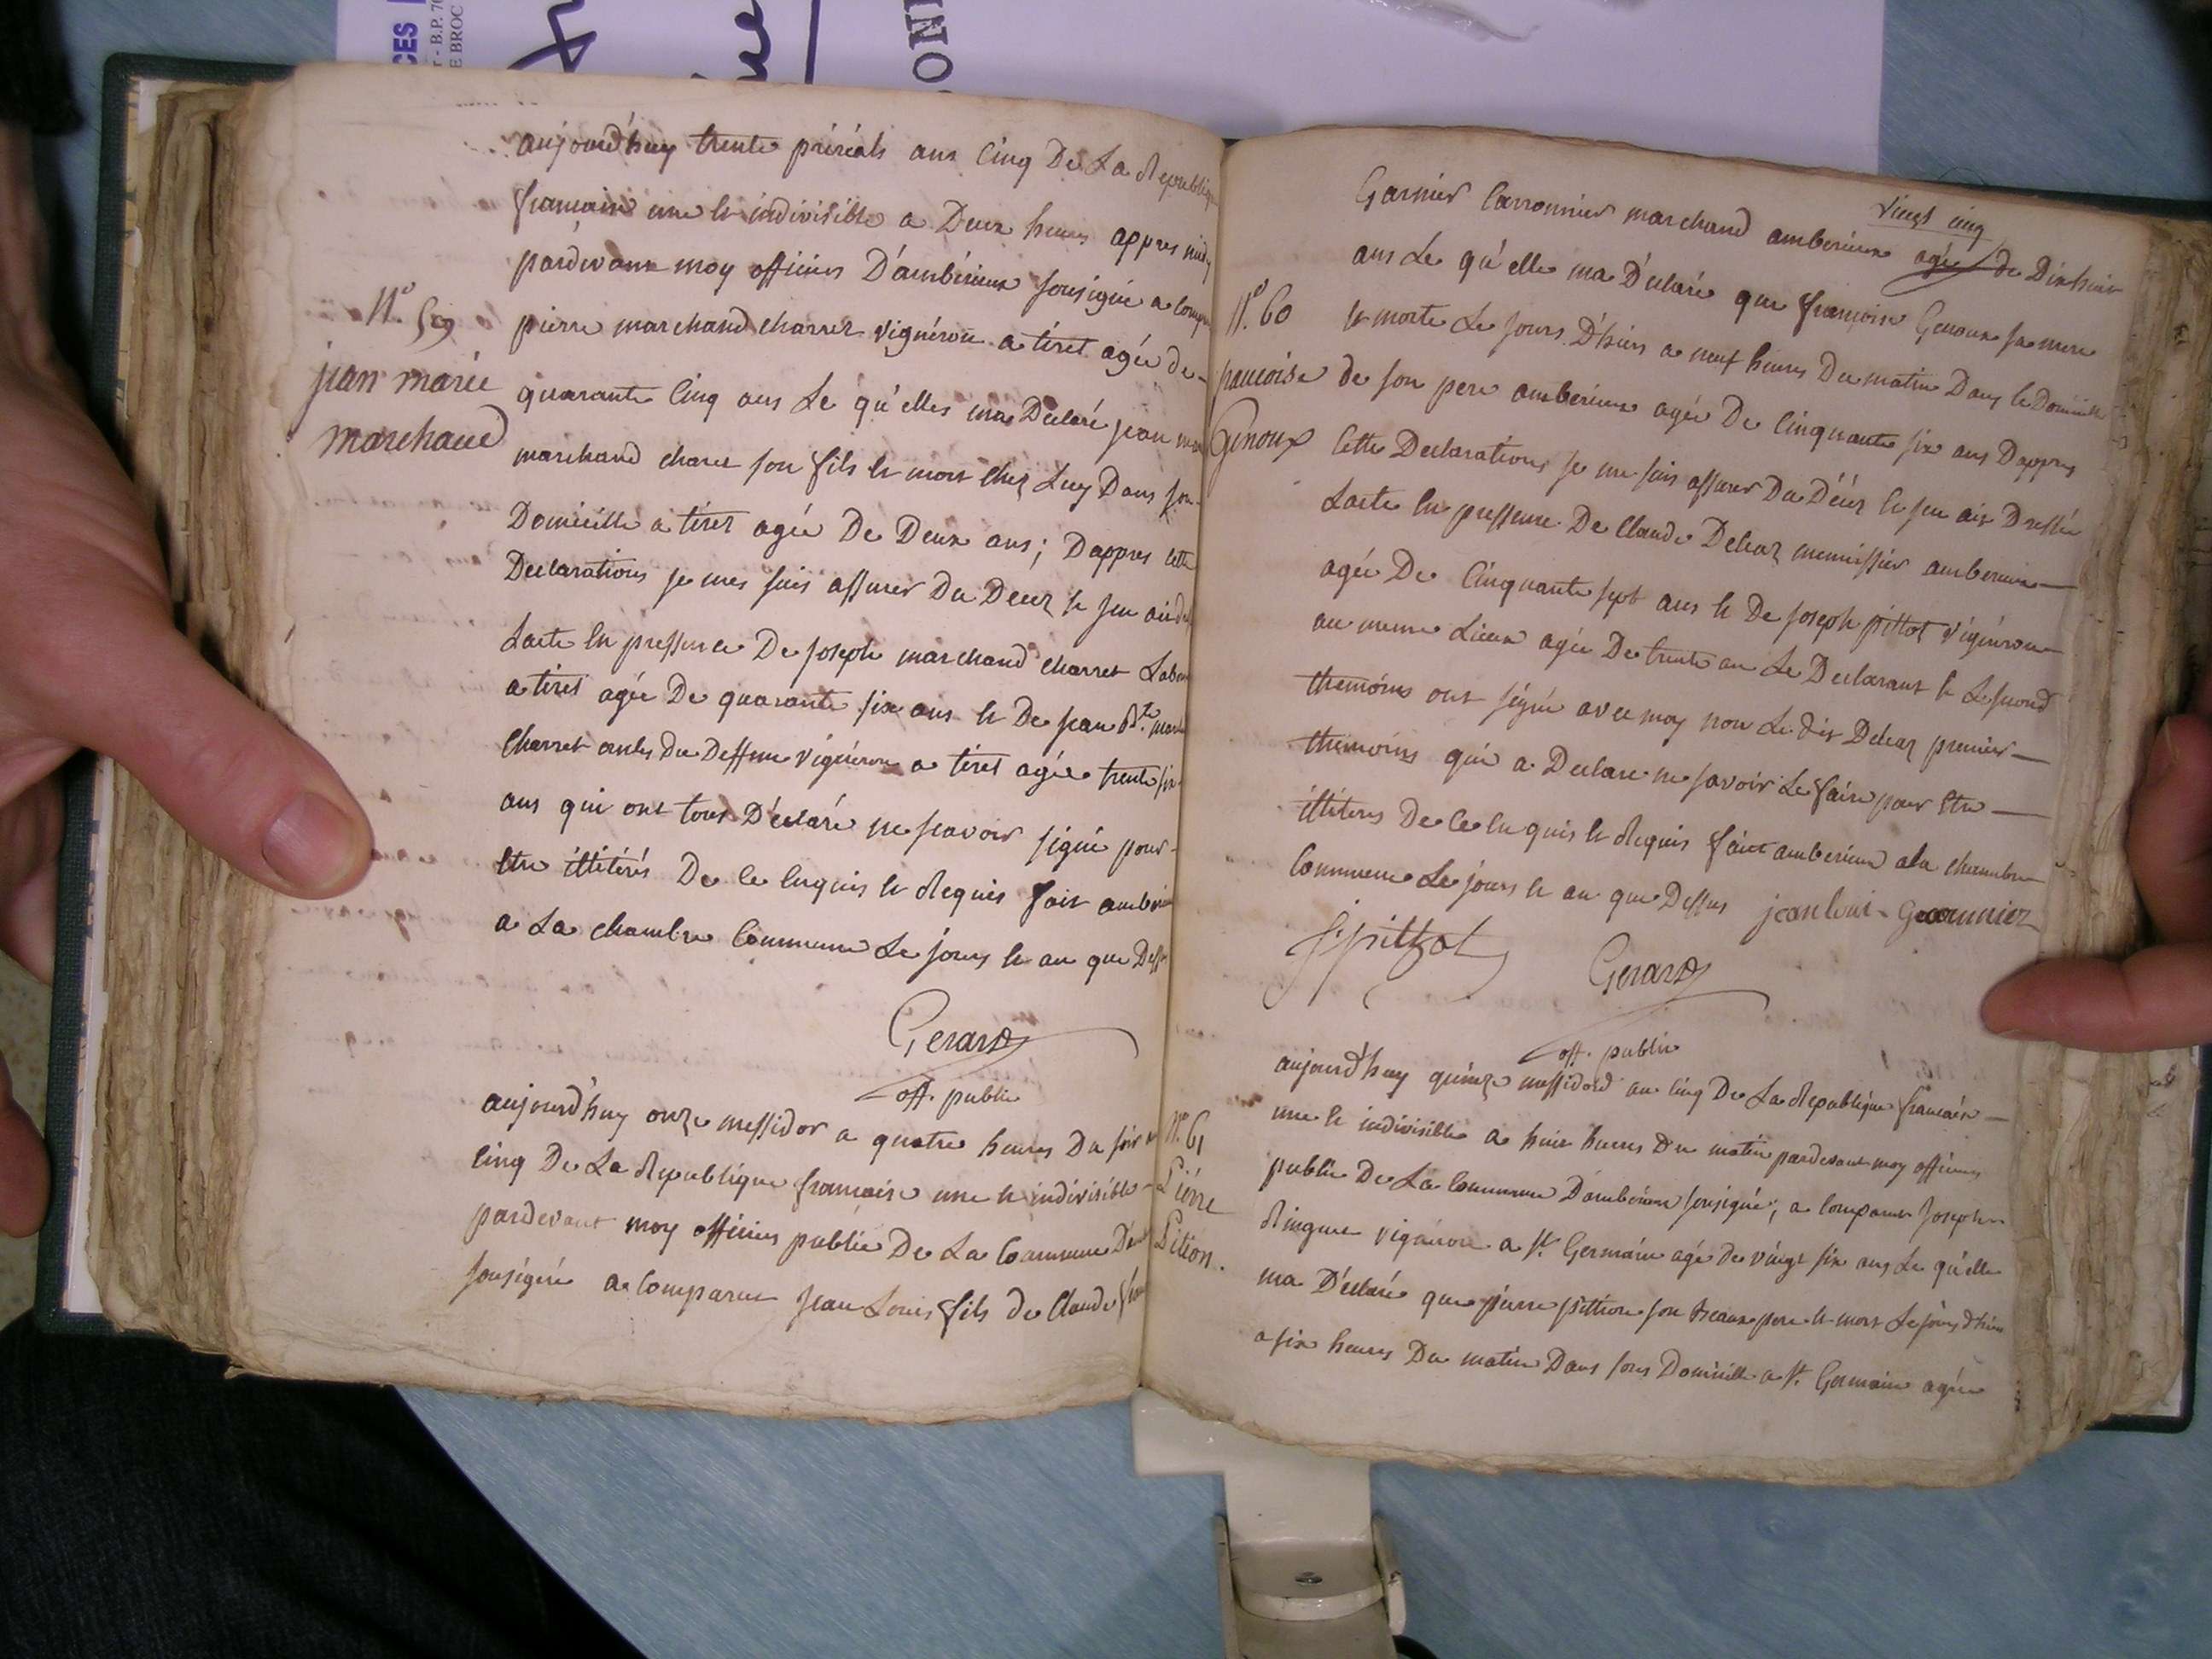 CES
T - B.P. 70
E BROC
ONI
aujourd'huy trente préréals ans Cinq De La Republiqu
francaise une et indivisible a Deux heures appres midy
pardevant moy officier D'ambérieux sousigné a compa
N.° 59
jean marie
marchand
pierre marchand charret vignéron a tiret agée de
quarante Cinq ans Le qu'elles ma Declaré jean mar
marchand charet son fils et mort chez Luy Dans son
Domicille a tiret agée De Deux ans; Dappres cette
Declarations je mes suis assurer Du Decez et jen ai d
Lacte En pressence De joseph marchand charret Labou
a tiret agée De quarante six ans et De jean B.te march
Charret oncles du Deffunt vignéron a tiret agée trente six
ans qui ont tous Déclaré ne scavoir signé pour
Etre illitérés De ce Enquis et Requis fait amberi
a La chambre Commune Le jours et an que Dess
Gerard
off. public
aujourd'huy onze messidor a quatre heures Du soir
Cinq De La Republique francaise une et indivisible
pardevant moy officier public De La Commune D'am
sousigné a Comparut Jean Louis fils de Claude
Garnier Carronnier marchand amberieux agée de Dixhuit
vingt cinq
ans Le qu'elle ma Déclaré que francoise Genoux sa mere
N.° 60
francoise
Genoux
et morte Le jours D'hiers a neuf heures Du matin Dans le Domicille
de son pere amberieux agée De Cinquante six ans Dappres
Cette Declarations je me suis assurer Du Décez et jen ait Dressée
Lacte En pressence De Claude Delcaz menuissier amberieux
agée De Cinquante sept ans et De joseph pittot vignéron
au meme Lieux agée De trente an Le Declarant et Le second
themoins ont signé avec moy non Le dit Delcaz premier
themoins qui a Declare ne savoir Le faire pour Etre
illiteres De ce Enquis et Requis fait amberieux a la chambre
Commune Le jours et an que Dessus jean louis Guarnnier
J pittot
Gerard
off. public
N° 61
Piérre
Pition.
aujourd'huy quinze messidord an Cinq De La Republique francaise
une et indivisible a huit heures Du matin pardevant moy officiers
public De La Commune Damberieux sousigné; a comparut Joseph
Ringue vignéron a St Germain agé de vingt six ans Le qu'elle
ma Déclaré que pierre pittion son Beaux pere et mort Le jours d'hier
a six heures Du matin Dans sons Domicille a St. Germain agée